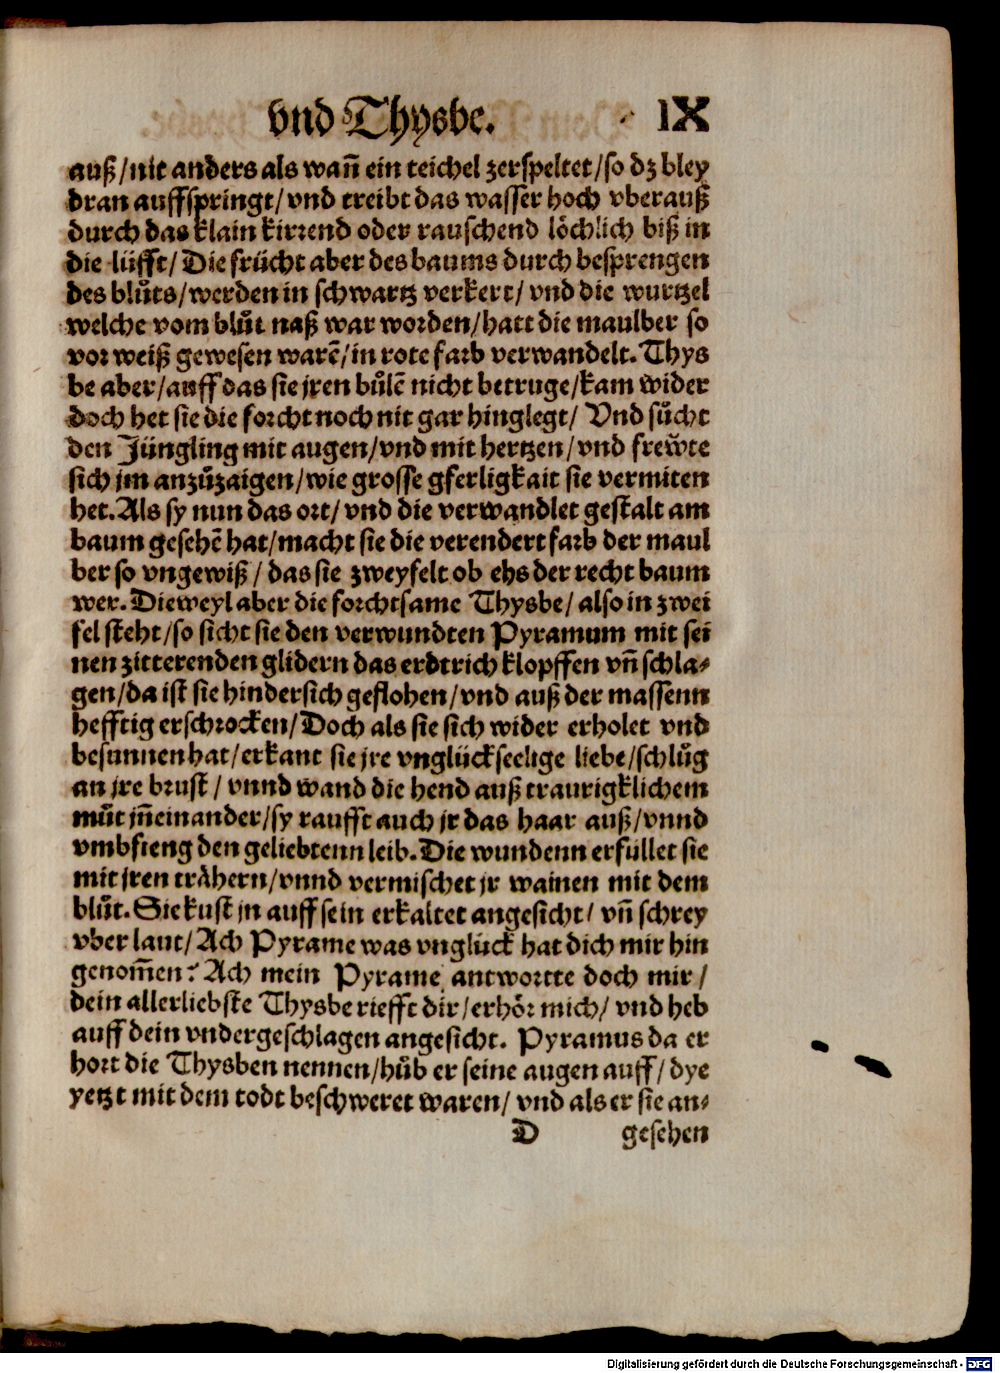 vnd Thysbe. IX
auß/nit anders als wañ ein teichel zerspeltet/so dz bley
dran auffspringt/vnd treibt das wasser hoch vberauß
durch das klain kirrend oder rauschend löchlich biß in
die lüfft/Die frücht aber des baums durch besprengen
des blůts/werden in schwartz verkert/vnd die wurtzel
welche vom blůt naß war worden/hatt die maulber so
vor weiß gewesen warẽ/in rote farb verwandelt. Thys
be aber/auff das sie jren bůlẽ nicht betruge/kam wider
doch het sie die forcht noch nit gar hinglegt/Vnd sůcht
den Jüngling mit augen/vnd mit hertzen/vnd frewte
sich jm anzůzaigen/wie grosse gferligkait sie vermiten
het. Als sy nun das ort/vnd die verwandlet gestalt am
baum gesehẽ hat/macht sie die verendert farb der maul
ber so vngewiß/das sie zweyfelt ob ehs der recht baum
wer. Dieweyl aber die forchtsame Thysbe/also in zwei
fel steht/so sicht sie den verwundten Pyramum mit sei
nen zitterenden glidern das erdtrich klopffen vñ schla⸗
gen/da ist sie hindersich geflohen/vnd auß der massenn
hefftig erschrocken/Doch als sie sich wider erholet vnd
besunnen hat/erkant sie jre vnglückseelige liebe/schlůg
an jre brust/vnnd wand die hend auß traurigklichem
můt jñeinander/syraufft auch jr das haar auß/vnnd
vmbfieng den geliebtenn leib. Die wundenn erfullet sie
mit jren trähern/vnnd vermischet jr wainen mit dem
blůt. Sie kust jn auff sein erkaltet angesicht/vñ schrey
vber laut/Ach Pyrame was vnglück hat dich mir hin
genom̃en? Ach mein Pyrame antwortte doch mir/
dein allerliebste Thysbe riefft dir/erhör mich/vnd heb
auff dein vndergeschlagen angesicht. Pyramus da er
hort die Thysben nennen/hůb er seine augen auff/dye
yetzt mit dem todt beschweret waren/vnd als er sie an⸗
D gesehen
Digitalisierung gefördert durch die Deutsche Forschungsgemeinschaft - DFG